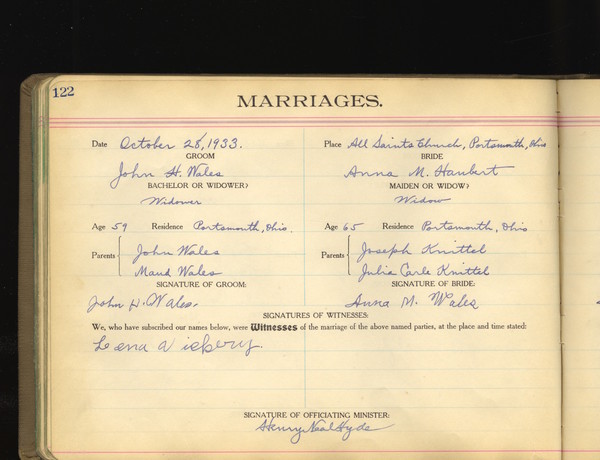 122
MARRIAGES.
Date October 28, 1933. Place All Saints Church, Portsmouth, Ohio
GROOM BRIDE
John H. Wales Anna M. Haubert
BACHELOR OR WIDOWER? MAIDEN OR WIDOW?
Widower Widow
Age 59 Residence Portsmouth, Ohio. Age 65 Residence Portsmouth, Ohio
Parents John Wales Parents Joseph Knittel
Maud Wales Julia Carle Knittel
SIGNATURE OF GROOM: SIGNATURE OF BRIDE:
John H. Wales. Anna M. Wales
SIGNATURES OF WITNESSES:
We, who have subscribed our names below, were Witnesses of the marriage of the above named parties, at the place and time stated:
Leena
SIGNATURE OF OFFICIATING MINISTER:
Henry Neal Hyde